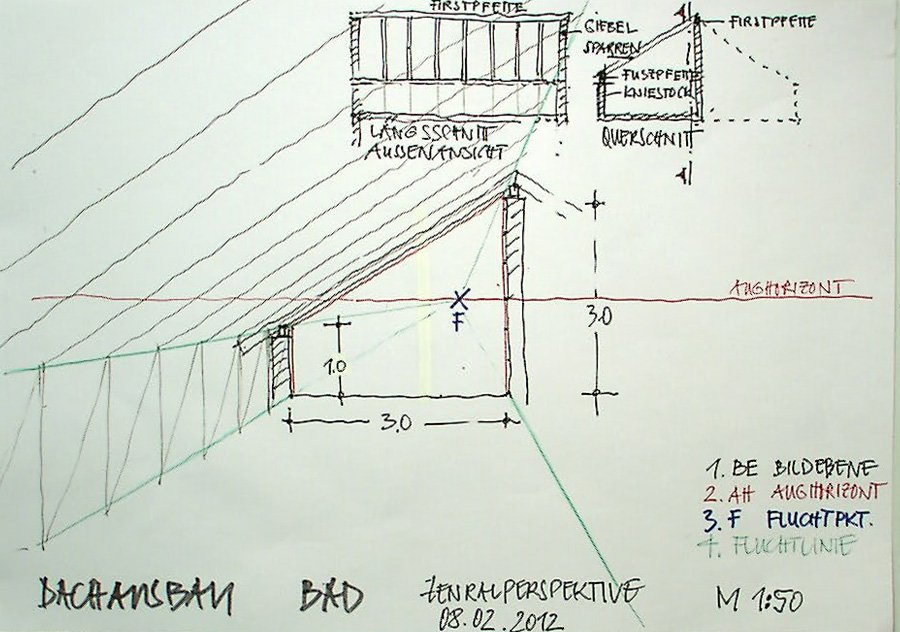 FIRSTPFETTE
GIEBEL
SPARREN
FIRSTPFETTE
FUSZPFETTE
KNIESTOCK
LÄNGSSCHNITT
AUSSENANSICHT
QUERSCHNITT
A
A
AUGHORIZONT
F
3.0
1.0
3.0
1. BE BILDEBENE
2. AH AUGHORIZONT
3. F FLUCHTPKT.
4. FLUCHTLINIE
DACHAUSBAU BAD ZENRALPERSPEKTIVE M 1:50
08.02.2012